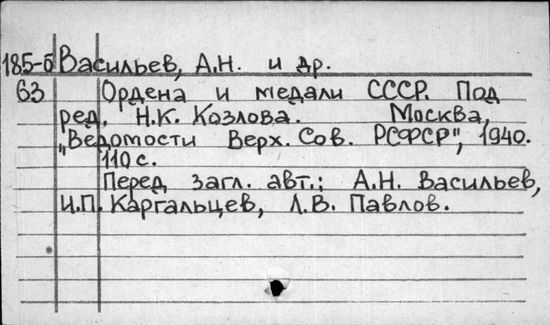 185-б Васильев, А.Н. и др.
63 Ордена и медали СССР. Под
ред. Н.К. Козлова. Москва,
"Ведомости Верх. Сов. РСФСР", 1940.
110 с.
Перед загл. авт.: А.Н. Васильев,
И.П. Каргальцев, Л.В. Павлов.